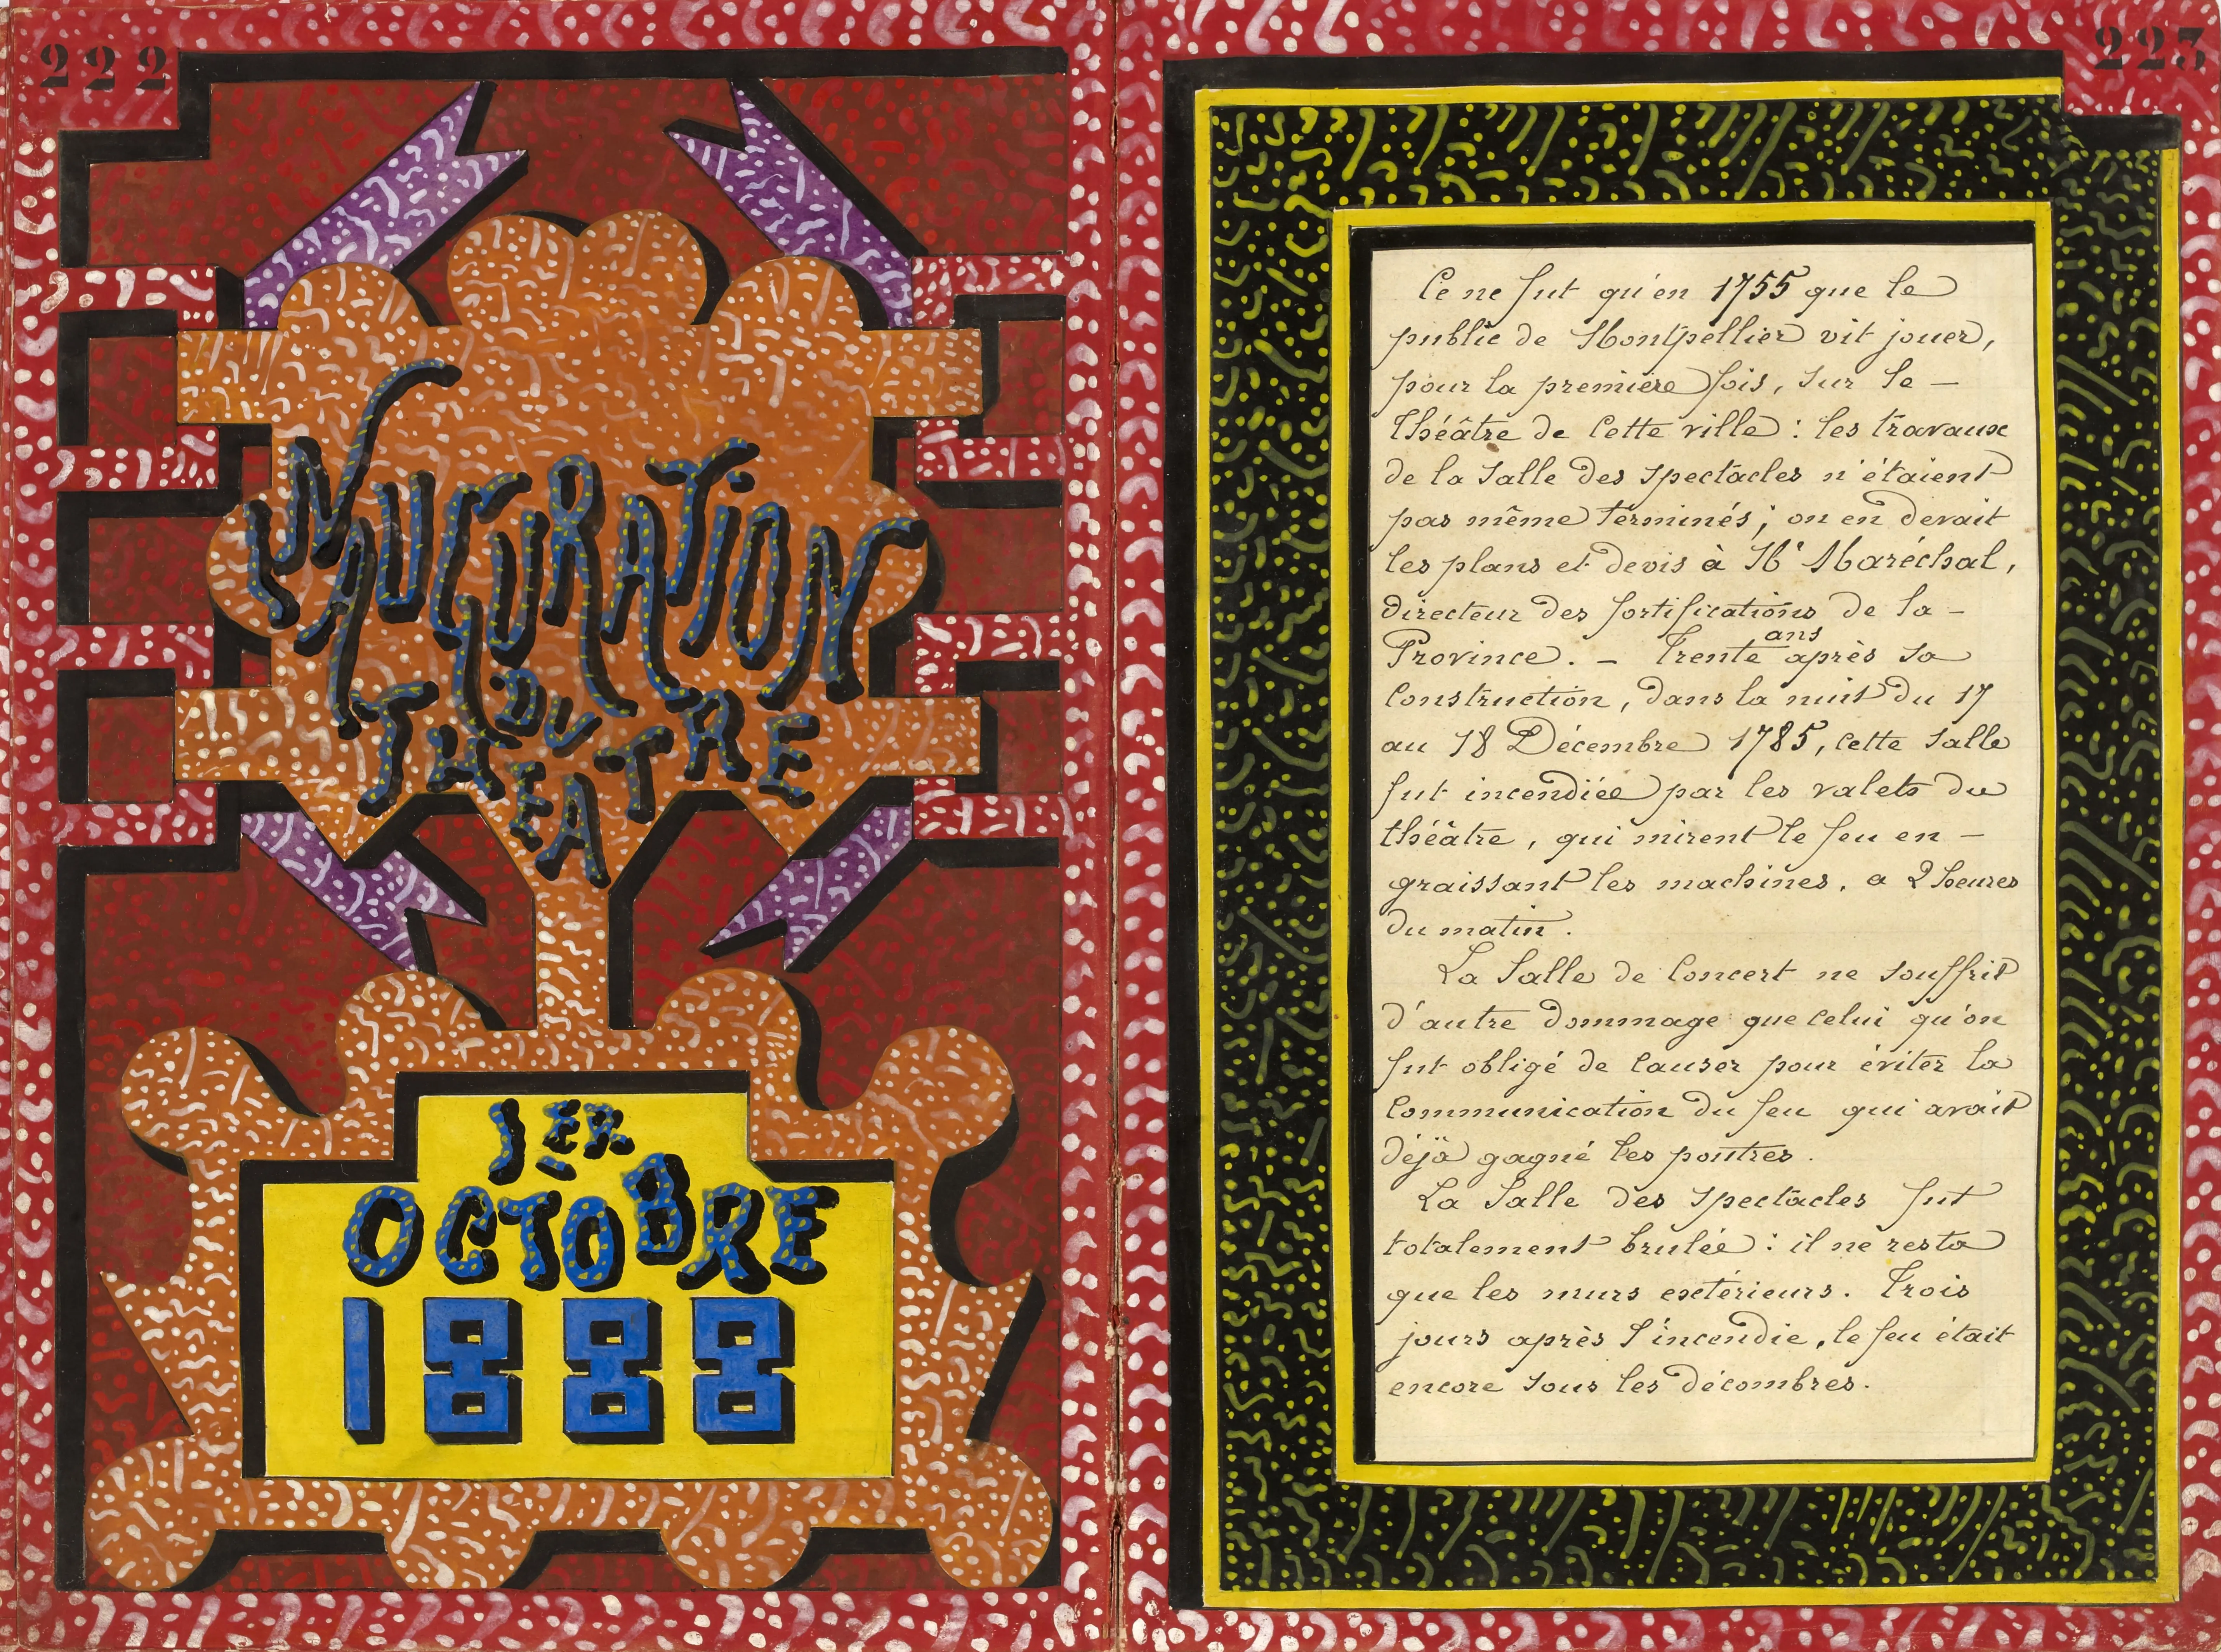 222
INAUGURATION
DU
THEATRE
1ER
OCTOBRE
1888
223
Ce ne fut qu'en 1755 que le
public de Montpellier vit jouer,
pour la première fois, sur le -
Théâtre de cette ville : les travaux
de la Salle des spectacles n'étaient
pas même terminés ; on en devait
les plans et devis à Mr Maréchal,
directeur des fortifications de la -
Province. - Trente ans après sa
construction, dans la nuit du 17
au 18 Décembre 1785, cette salle
fut incendiée par les valets du
théâtre, qui mirent le feu en -
graissant les machines, a 2 heures
du matin.
La Salle de Concert ne souffrit
d'autre dommage que celui qu'on
fut obligé de causer pour éviter la
communication du feu qui avait
déjà gagné les poutres.
La Salle des spectacles fut
totalement brulée : il ne resta
que les murs extérieurs. Trois
jours après l'incendie, le feu était
encore sous les décombres.